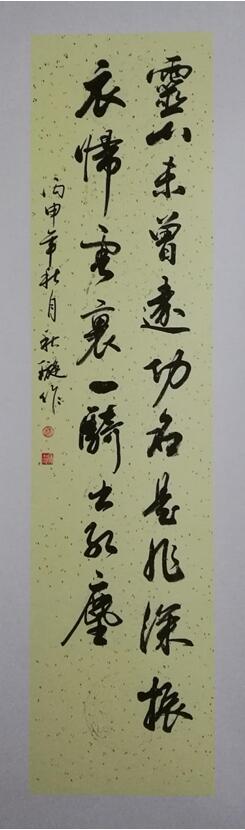 靈山未曾遠功名是非深振
衣歸雲裏一騎出紅塵
丙申年秋月秋璇作